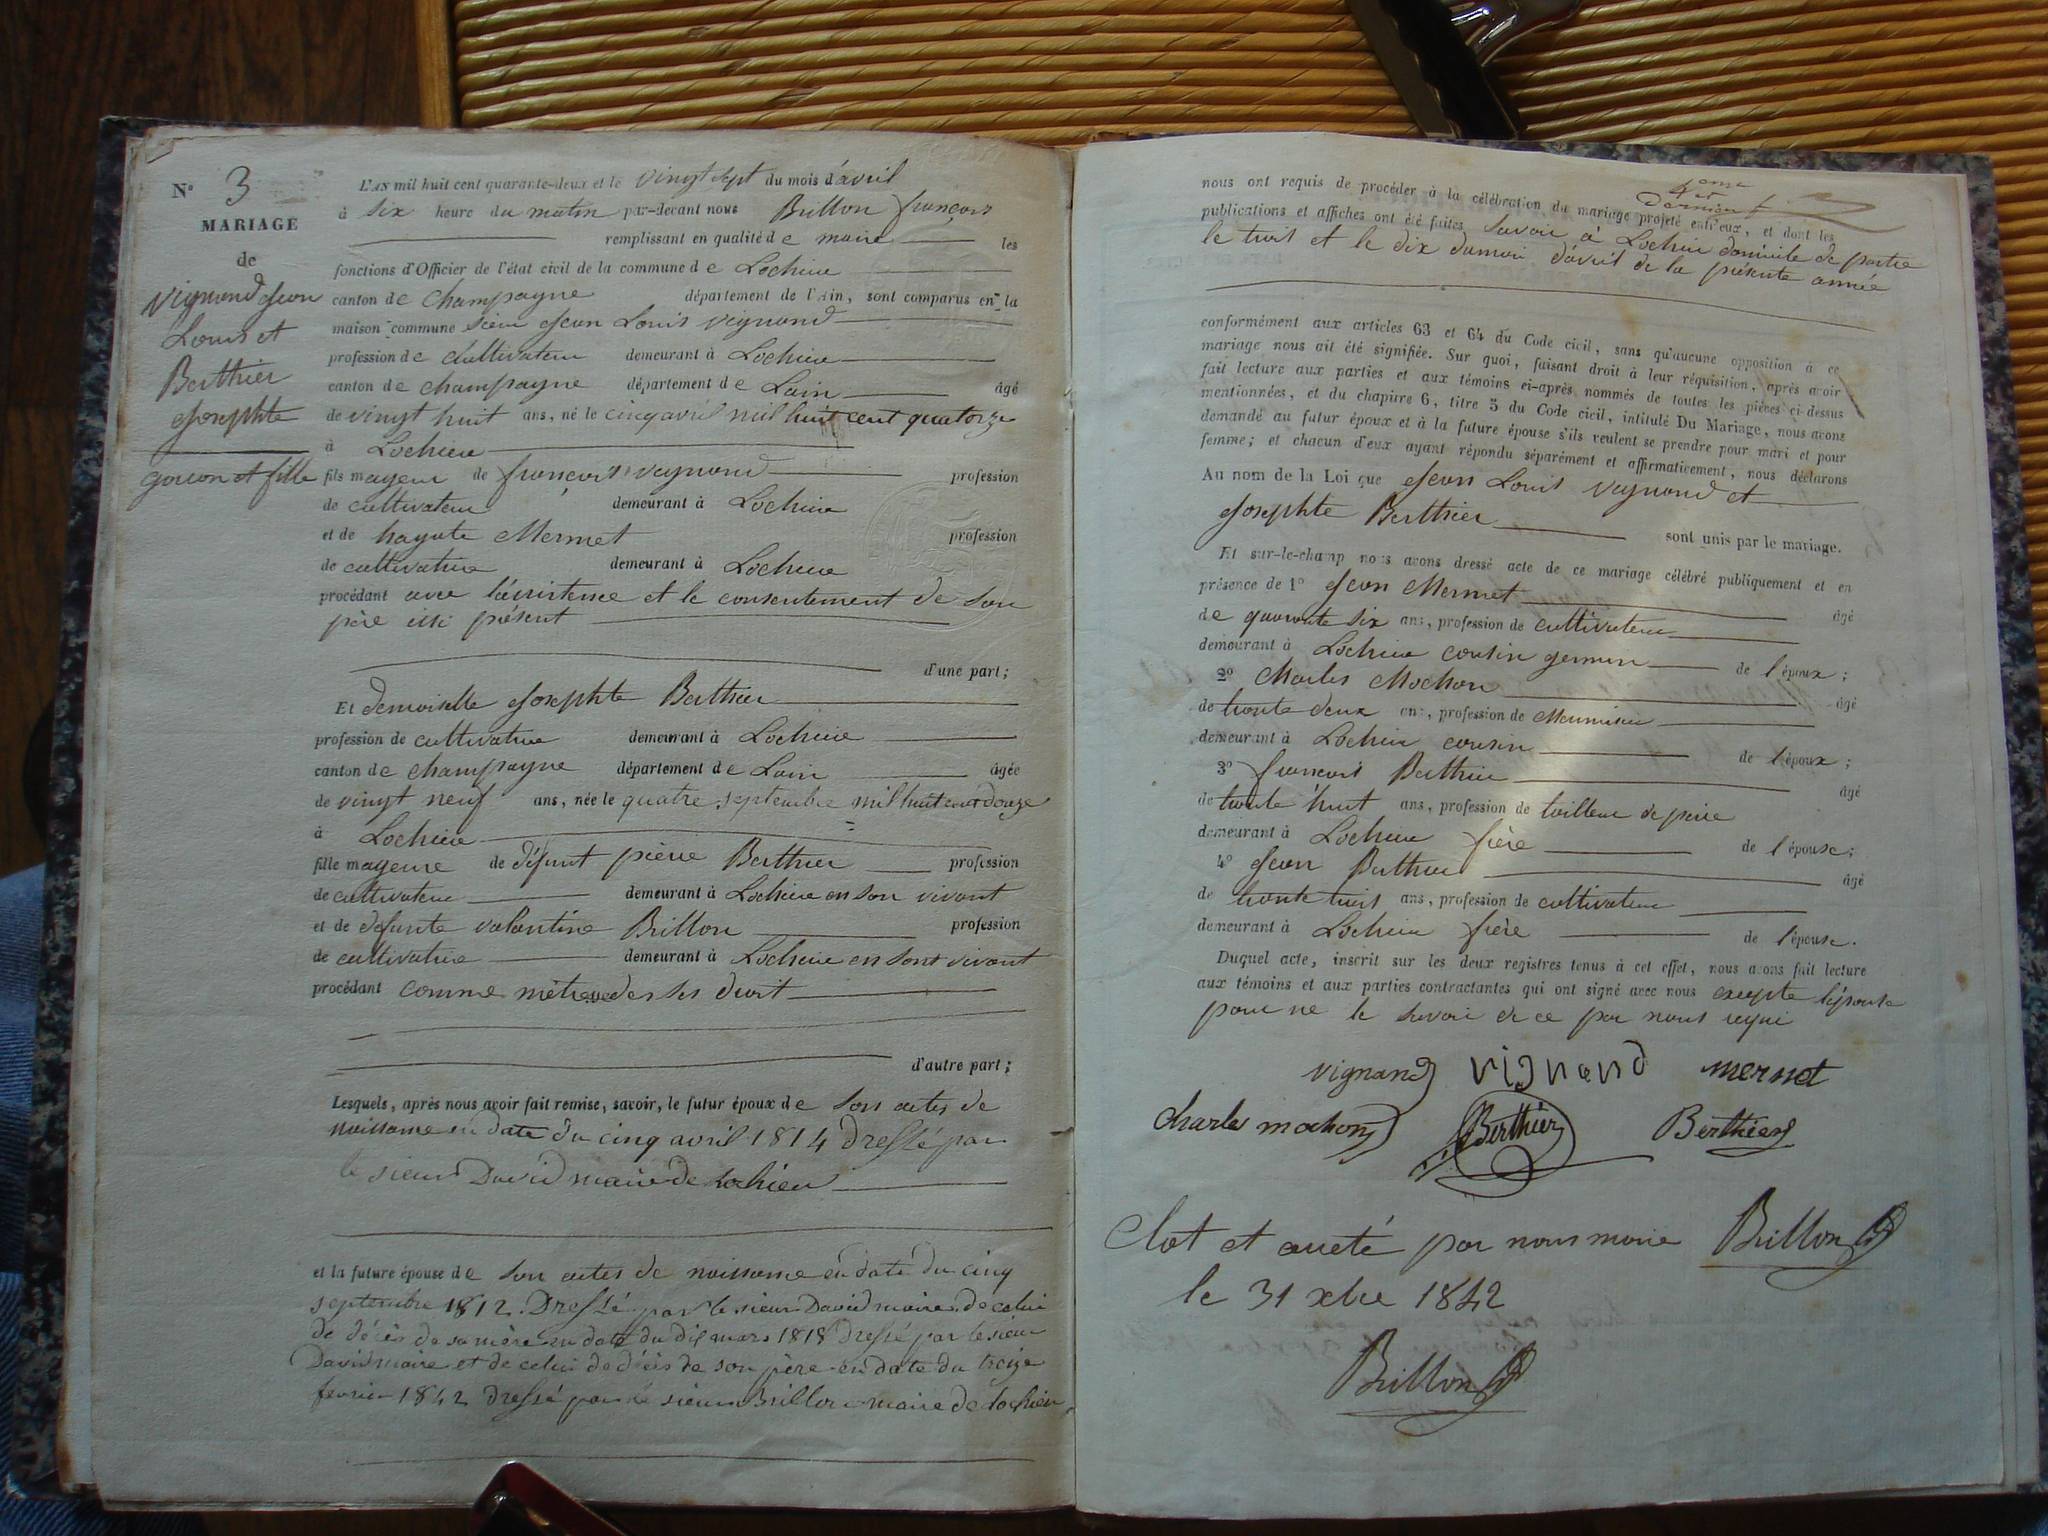 N° 3
MARIAGE
de
Vignand Jean
Louis et
Berthier
Josephte
garcon et fille
L'AN mil huit cent quarante-deux et le vingt sept du mois d'avril
à six heure du matin par-devant nous Brillon françois
remplissant en qualité de maire les
fonctions d'Officier de l'état civil de la commune de Lochieu
canton de Champagne département de l'Ain, sont comparus en la
maison commune sieur Jean Louis vignand
profession de cultivateur demeurant à Lochieu
canton de champagne département de Lain âgé
de vingt huit ans, né le cinq avril mil huit cent quatorze
à Lochieu
fils mageur de françois vignand profession
de cultivateur demeurant à Lochieu
et de Mermet profession
de cultivatrice demeurant à Lochieu
procédant avec l'assistence et le consentement de son
père issi présent
d'une part;
Et demoiselle Josephte Berthier
profession de cultivatrice demeurant à Lochieu
canton de champagne département de Lain âgée
de vingt neuf ans, née le quatre septembre mil huit cent douze
à Lochieu
fille mageure de défunt pierre Berthier profession
de cultivateur demeurant à Lochieu en son vivant
et de defunte valentine Brillon profession
de cultivatrice demeurant à Lochieu en sont vivant
procédant comme des ses droit
d'autre part;
Lesquels, après nous avoir fait remise, savoir, le futur époux de son actes de
naissance en date du cinq avril 1814 Dressé par
le sieur David maire de Lochieu
et la future épouse de son actes de naissance en date du cinq
septembre 1812. Dressé par le sieur David maire, de celui
de décès de sa mère en date du dix mars 1818 dressé par le sieur
David maire et de celui de décès de son père en date du treize
fevrier 1842 dressé par le sieur Brillon maire de Lochieu
nous ont requis de procéder à la célébration du mariage projeté entr'eux, et dont les
et
Dernier
publications et affiches ont été faites, savoir à Lochieu domicile de partie
le trois et le dix du moi d'avril de la présente année
conformément aux articles 63 et 64 du Code civil, sans qu'aucune opposition à ce
mariage nous ait été signifiée. Sur quoi, faisant droit à leur réquisition, après avoir
fait lecture aux parties et aux témoins ci-après nommés de toutes les pièces ci-dessus
mentionnées, et du chapitre 6, titre 5 du Code civil, intitulé Du Mariage, nous avons
demandé au futur époux et à la future épouse s'ils veulent se prendre pour mari et pour
femme; et chacun d'eux ayant répondu séparément et affirmativement, nous déclarons
Au nom de la Loi que Jean Louis vignand et
Josephte Berthier sont unis par le mariage.
Et sur-le-champ nous avons dressé acte de ce mariage célébré publiquement et en
présence de 1° Jean Mermet âgé
de quarante six ans, profession de cultivateur
demeurant à Lochieu cousin germain de l'époux;
2° Charles Mochon âgé
de trente deux ans, profession de Meunisier
demeurant à Lochieu cousin de l'époux;
3° françois Berthier âgé
de trente huit ans, profession de tailleur de pierre
demeurant à Lochieu frère de l'épouse;
4° Jean Berthier âgé
de trente trois ans, profession de cultivateur
demeurant à Lochieu frère de l'épouse.
Duquel acte, inscrit sur les deux registres tenus à cet effet, nous avons fait lecture
aux témoins et aux parties contractantes qui ont signé avec nous excepte l'épouse
pour ne le savoir de ce par nous requi
vignand vignand mermet
Charles mochon Berthier Berthier
Clot et areté par nous maire Brillon
le 31 xbre 1842
Brillon